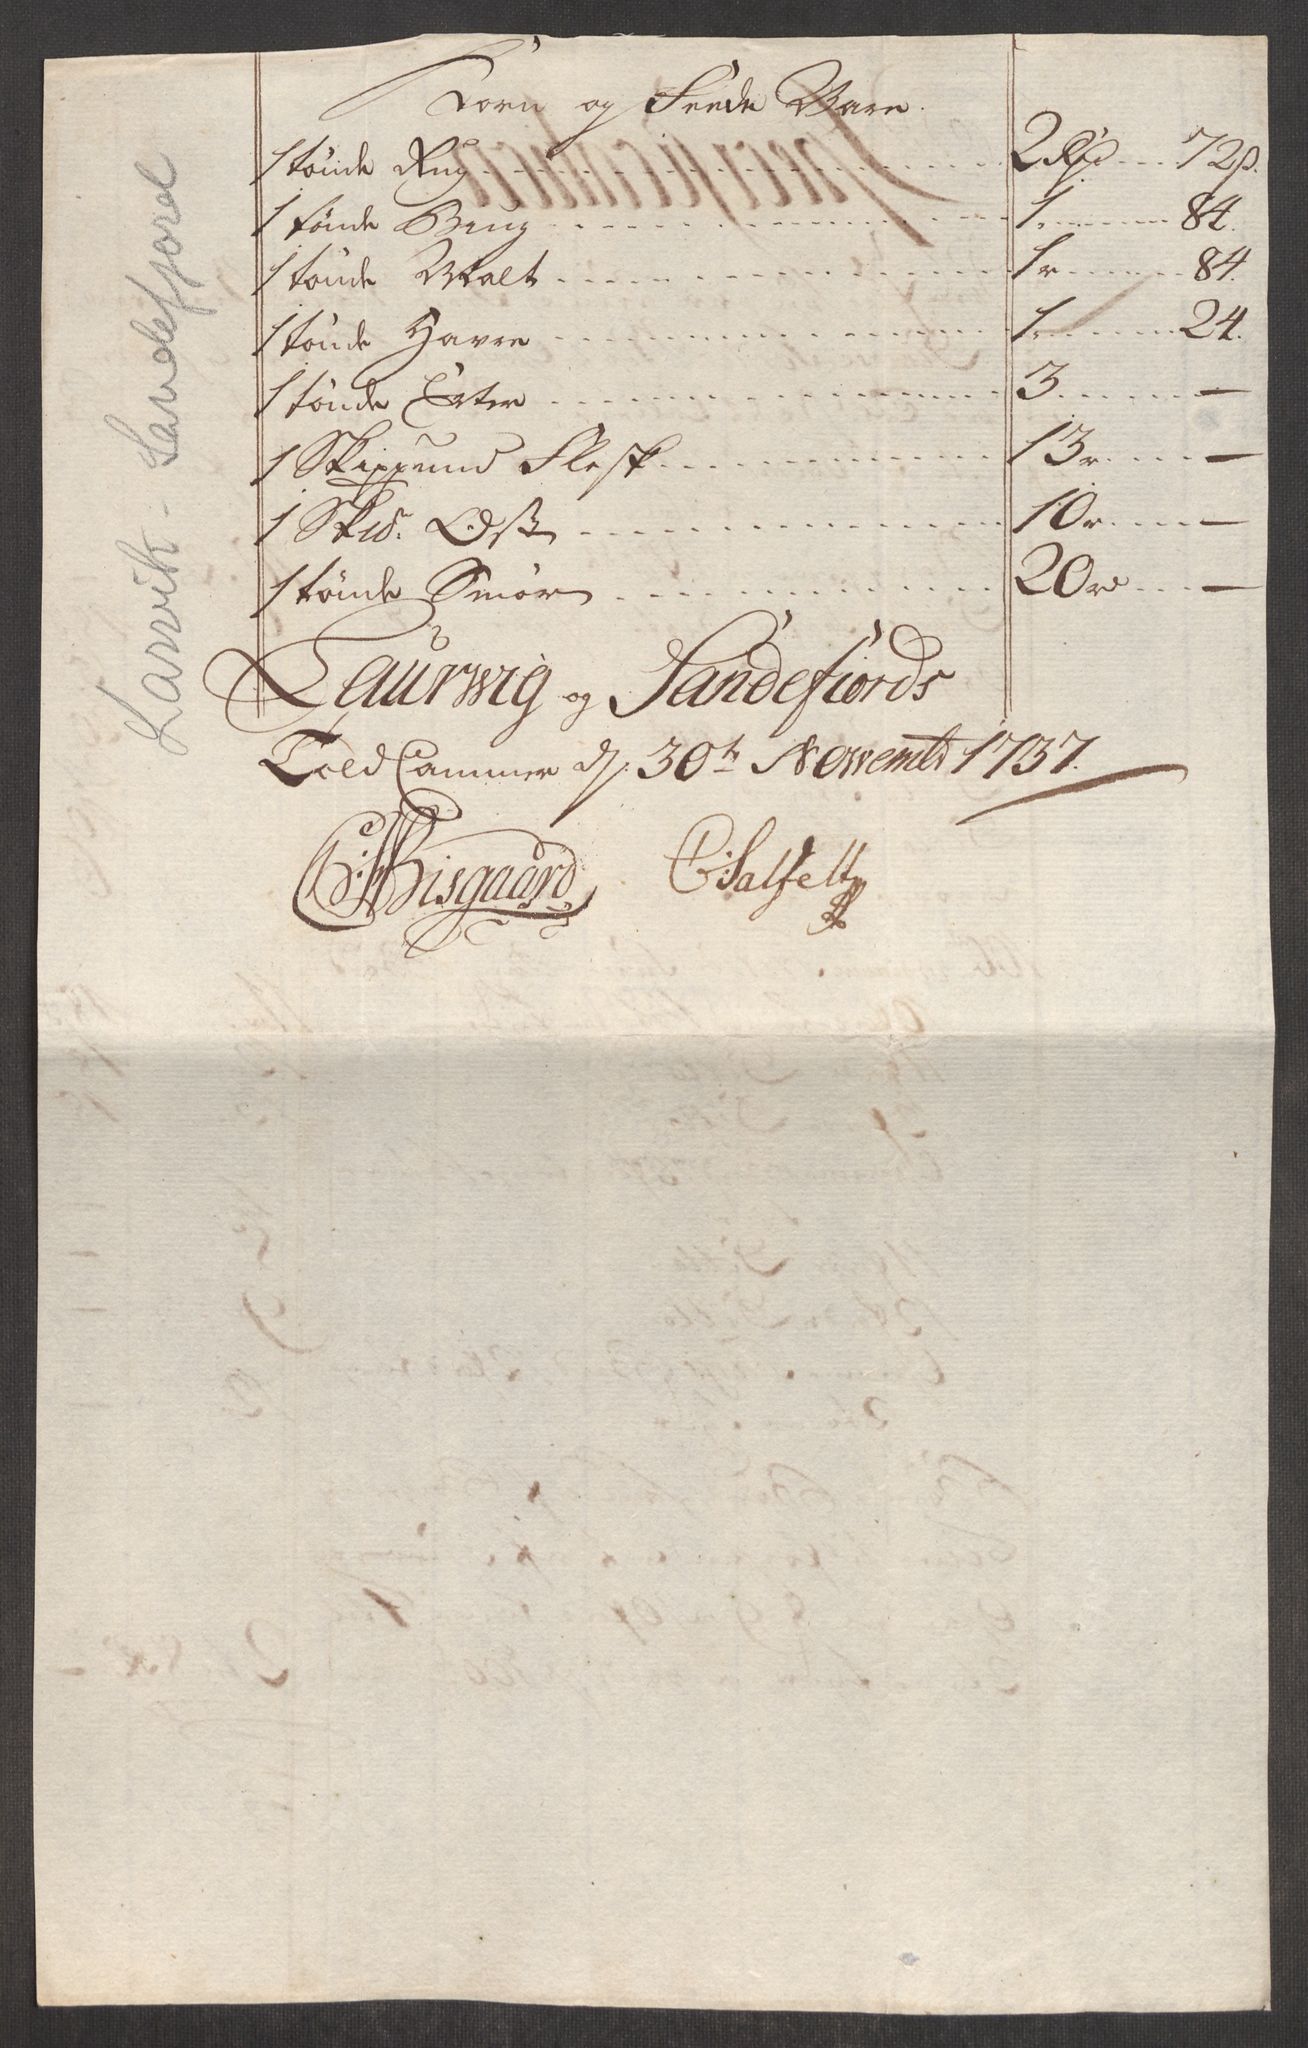 Corn og Feede Vare.
1 tönde Rug 2 Rd 72 ß.
1 tönde Biug 1. 84.
1 tönde Malt 1 r 84.
1 tönde Havre 1. 24.
1 tönde Erter 3 —
1 Skippund Flesk 13 r —
1 Skd. Ost 10 r —
1 tönde Smör 20 r —
Laurwig og Sandefiords
Told Cammer d. 30te Novembr 1737.
Bisgaard C: Salfelt
Larvik - Sandefjord